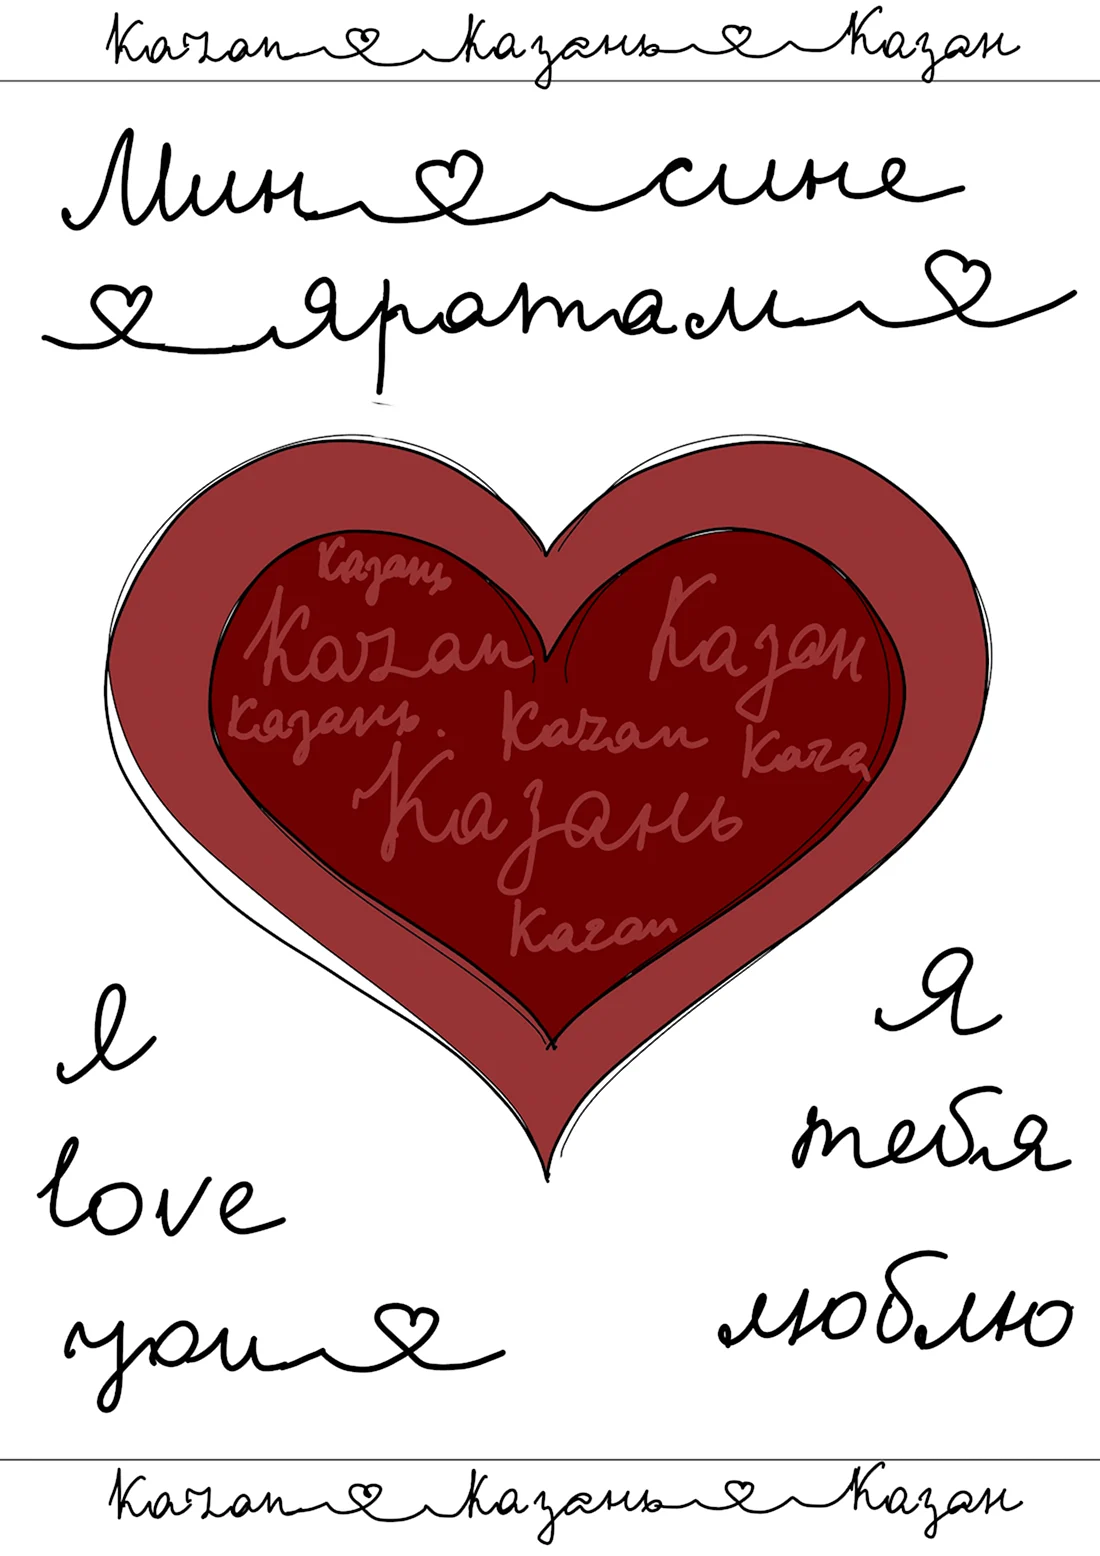 Kazan Казань Казан
Мин сине
яратам
Казань
Kazan Казан
Казань. Kazan
Казань
Kazan
I
love
you
Я
тебя
люблю
Kazan Казань Казан